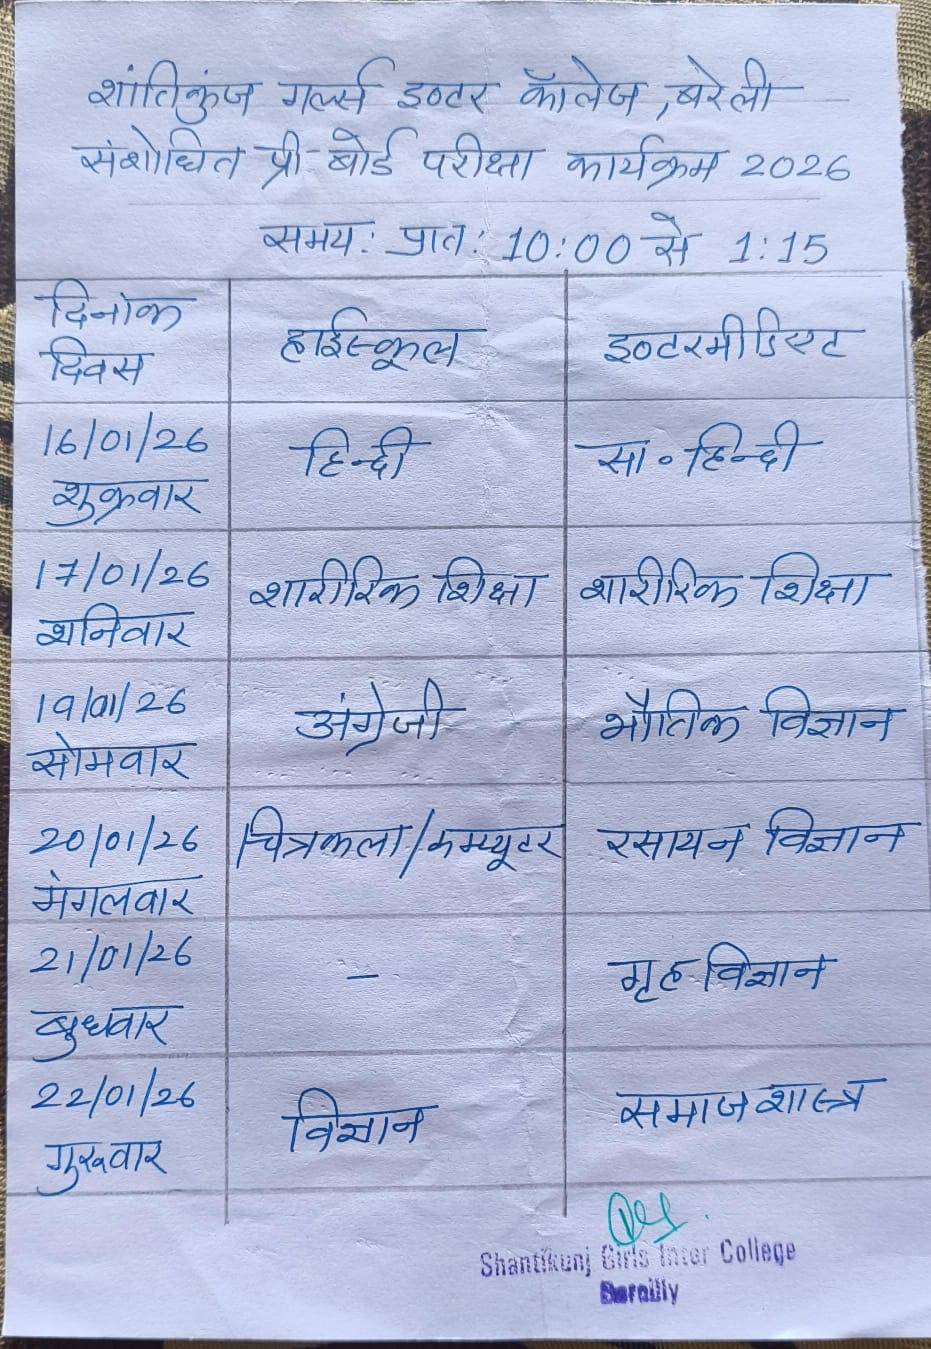 शांतिकुंज गर्ल्स इण्टर कॉलेज, बरेली
संशोधित प्री-बोर्ड परीक्षा कार्यक्रम 2026
समय: प्रात: 10:00 से 1:15
दिनांक दिवस हाईस्कूल इण्टरमीडिएट
16/01/26 शुक्रवार हिन्दी सा॰ हिन्दी
17/01/26 शनिवार शारीरिक शिक्षा शारीरिक शिक्षा
19/01/26 सोमवार अंग्रेजी भौतिक विज्ञान
20/01/26 मंगलवार चित्रकला/कम्प्यूटर रसायन विज्ञान
21/01/26 बुधवार - गृह विज्ञान
22/01/26 गुरूवार विज्ञान समाजशास्त्र
Shantikunj Girls Inter College
Bareilly